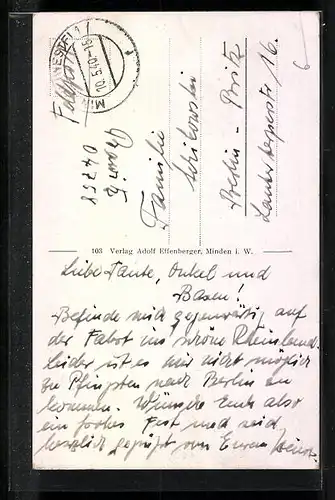 (WESTF) 1
MIN
10.5.40.-16
Feldpost
Familie
Berlin - Britz
16.
103 Verlag Adolf Effenberger, Minden i. W.
Liebe Tante, Onkel und
Basen!
Befinde mich gegenwärtig auf
der Fahrt ins schöne Rheinland.
Leider ist es mir nicht möglich
zu Pfingsten nach Berlin zu
kommen. Wünsche Euch also
ein frohes Fest und seid
herzlich gegrüßt von Eurem